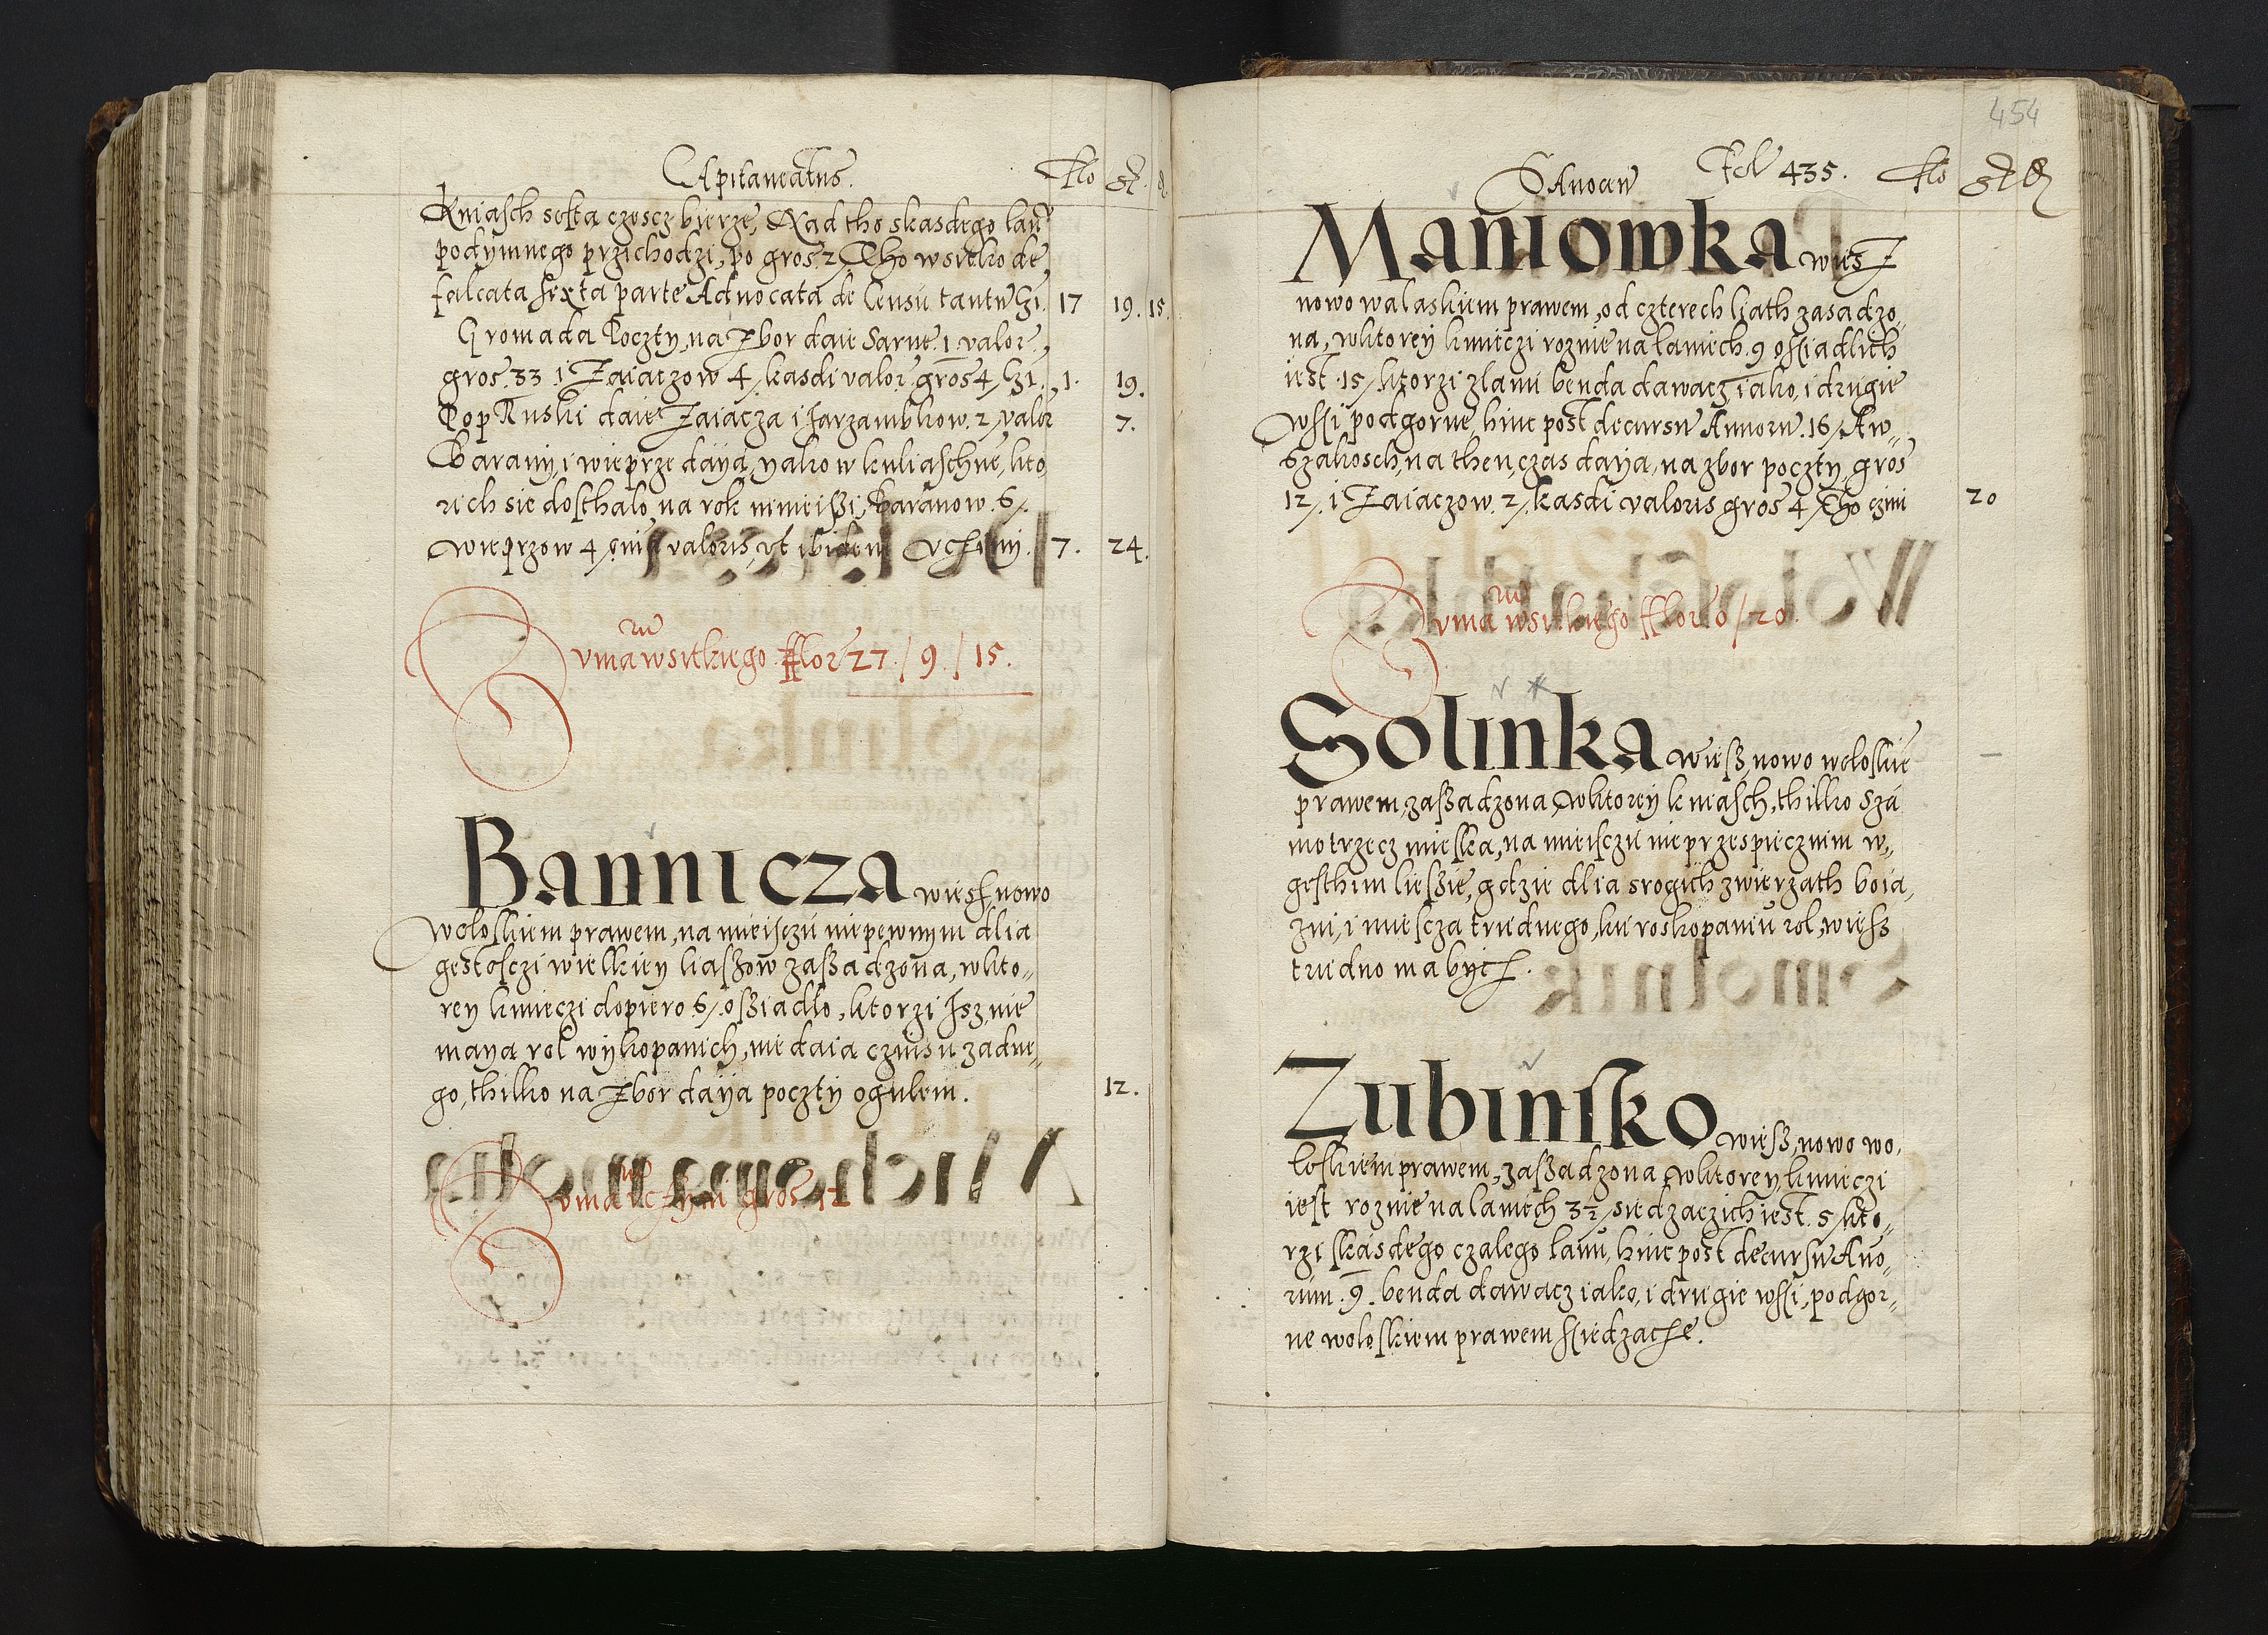 Capitaneatus. Flo gr. d
Kniasch sosta czescz bierze, Nad tho skasdego lanu
podymnego przichodzi, po gros 2, Tho wsitko de
falcata sexta parte Aduocata de Censu tantu czi. 17 19. 15.
Gromada Poczty, na Zbor daie Sarne 1 valor
gros. 33 i Zaiaczow 4, kasdi valor gros 4, czi. 1. 19.
Pop Ruski daie Zaiacza i Jarzambkow. 2, valor 7.
Barany, i wieprze daya, yako w kuliaschne, kto
rich sie dosthalo, na rok ninieissi, Baranow. 6,
wieprzow 4, valoris, vt ibidem Vczini. 7. 24.
Suma wsitkiego Flor 27 / 9 / 15.
Bannicza wiesz, nowo
woloskiem prawem, na mieisczu niepewnym dlia
gestosczi wielkiey liassow zassadzona, wkto-
rey kmieczi dopiero 6, ossiadlo, ktorzi Isz, nie
maya rol wykopanich, nie daia czinsu zadne-
go, thilko na Zbor daya poczty ogulem. 12.
Suma vczyni gros 12
454
Sanocen Fol 435. Flo gr d
Maniowka wies
nowo walaskiem prawem, od czterech liath zasadzo,
na, wktorey kmieczi roznie na laniech. 9 ossiadlich
iest. 15, ktorzi zlanu benda dawacz iako, i drugie
wssi podgorne, hinc post decursu Annoru. 16, Aw-
szakosch, na then, czas daya, na zbor poczty, gros
12, i Zaiaczow. 2, kasdi valoris gros 4, Tho czini 20
Suma wsitkiego Flor 0 / 20.
Solinka wiess, nowo woloskie
prawem, zassadzona, wktorey kniasch, thilko sza
motrzecz mieska, na mieisczu nieprzespiecznim w-
gesthim liessie, gdzie dlia srogich zwierzath boia,
zni, i miescza trudnego, ku roskopaniu rol, wiess
trudno ma bycz.
Zubinsko wiess, nowo wo,
loskiem prawem, zassadzona wktorey, kmieczi
iest roznie na laniech 3½, siedzaczich iest. 5, kto-
rzi skasdego czalego lanu, hinc post decursu Ano-
rum. 9. benda dawacz iako, i drugie wssi, podgor-
ne woloskiem prawem ssiedzacze.